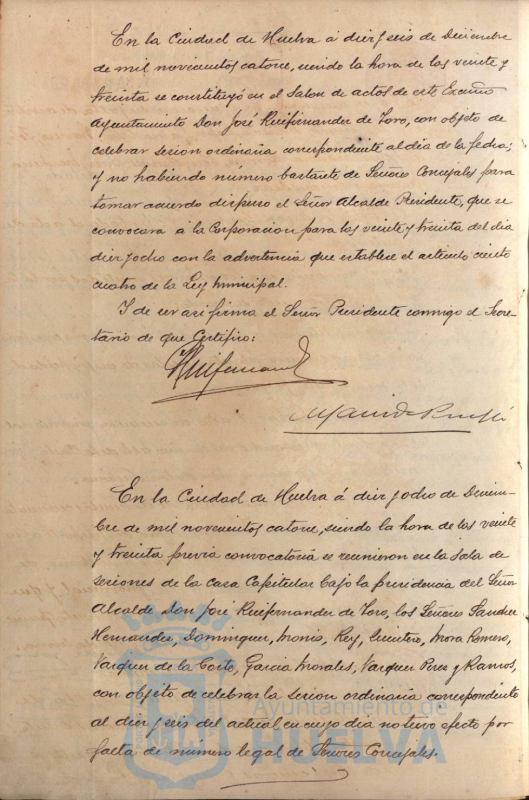 En la Ciudad de Huelva á diez y seis de Diciembre
de mil novecientos catorce, siendo la hora de las veinte y
treinta se constituyó en el Salon de actos de este Excmo
Ayuntamiento Don José Ruifernandez de Toro, con objeto de
celebrar sesion ordinaria correspondiente al dia de la fecha;
y no habiendo número bastante de Señores Concejales para
tomar acuerdo dispuso el Señor Alcalde Presidente, que se
convocara á la Corporacion para las veinte y treinta del dia
diez y ocho con la advertencia que establece el articulo ciento
cuatro de la Ley Municipal.
Y de ser asi firma el Señor Presidente conmigo el Secre-
tario de que Certifico:
En la Ciudad de Huelva á diez y ocho de Diciem-
bre de mil novecientos catorce, siendo la hora de las veinte
y treinta previa convocatoria se reunieron en la Sala de
sesiones de la casa Capitular bajo la presidencia del Señor
Alcalde Don José Ruifernandez de Toro, los Señores Sanchez
Hernandez, Dominguez, Rey, Quintero, Mora Romero,
Vazquez de la Corte, Garcia Morales, Vazquez Perez y Ramos,
con objeto de celebrar la sesion ordinaria correspondiente
al diez y seis del actual en cuyo dia no tuvo efecto por
falta de número legal de Señores Concejales.
Ayuntamiento de
HUELVA